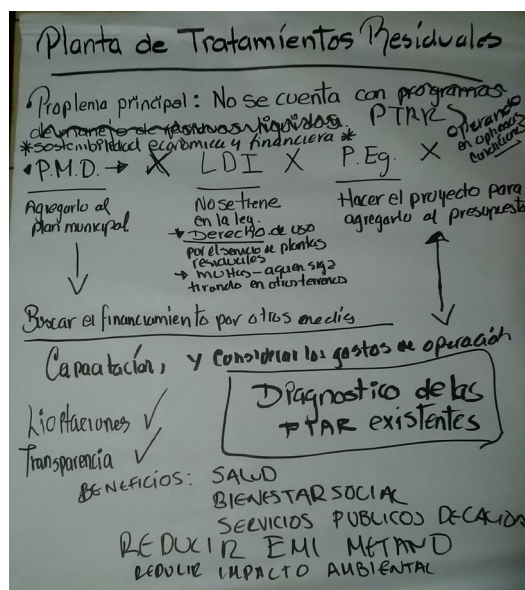 Planta de Tratamientos Residuales
Proplema principal: No se cuenta con programas
de manejo de residuos liquidos. PTAR
operando en optimas condiciones
*sostenibilidad económica y financiera*
P.M.D. → X LDI X P.Eg. X
Agregarlo al plan municipal
No se tiene en la ley.
→ Derecho de uso por el servicio de plantas residuales
→ multas - a quien siga tirando en otros terrenos
Hacer el proyecto para agregarlo al presupuesto
Buscar el financiamiento por otros medios
Capacitación, y considerar los gastos de operación
Diagnostico de las PTAR existentes
Licitaciones ✓
Transparencia ✓
BENEFICIOS: SALUD
BIENESTAR SOCIAL
SERVICIOS PUBLICOS DE CALIDAD
REDUCIR EMI METANO
REDUCIR IMPACTO AMBIENTAL